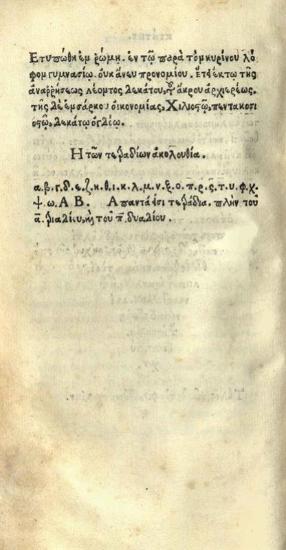 Ετυπώθη ἐμ ῥώμῃ. ἐν τῷ παρὰ τομκυρίνου λό
φομ γυμνασίῳ. οὐκ ἄνευ προνομίου. ἔτει ἕκτῳ τῆς
ἀναρρήσεως λέοντος δεκάτου, τοῦ ἄκρου ἀρχιερέως.
τῆς δὲ ἐνσάρκου οἰκονομίας, Χιλιοστῷ, πεντακοσι
οστῷ, δεκάτῳ ὀγδόῳ.
Ἡ τῶν τετραδίων ἀκολουθία.
α.β.γ.δ.ε.ζ.η.θ.ι.κ.λ.μ.ν.ξ.ο.π.ρ.ς.τ.υ.φ.χ
ψ.ω.Α Β. Ἅπαντά εἰσι τετράδια. πλὴν τοῦ